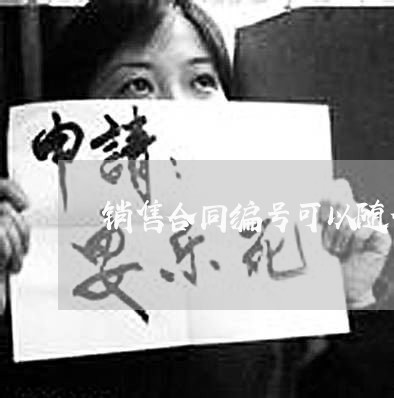 申請：
销售合同编号可以随
安乐死